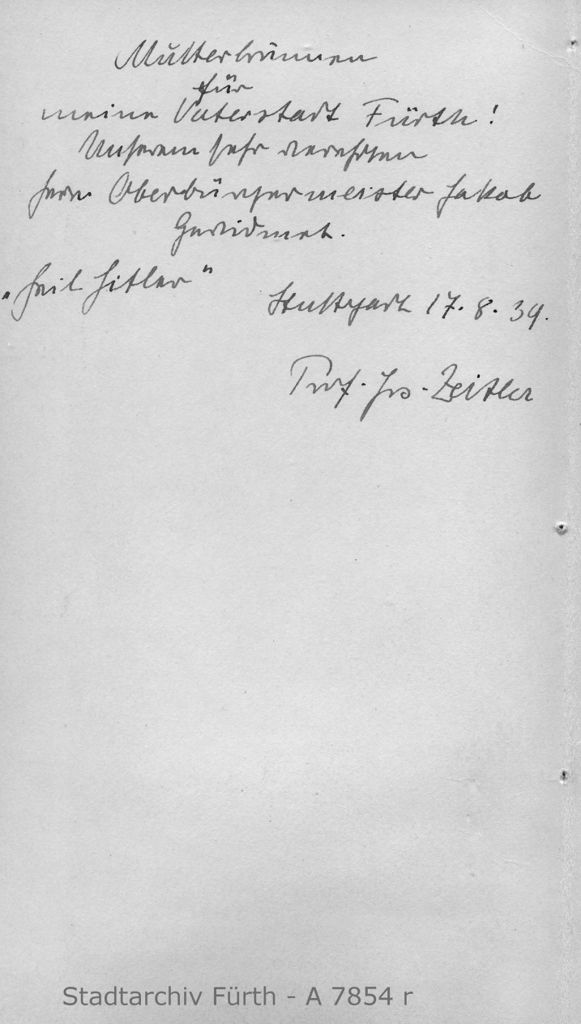 Mutterbrunnen
für
meine Vaterstadt Fürth!
Unserem sehr verehrten
Herrn Oberbürgermeister Jakob
Gewidmet.
"Heil Hitler"
Stuttgart 17. 8. 39.
Prof. Jos. Zeitler
Stadtarchiv Fürth - A 7854 r